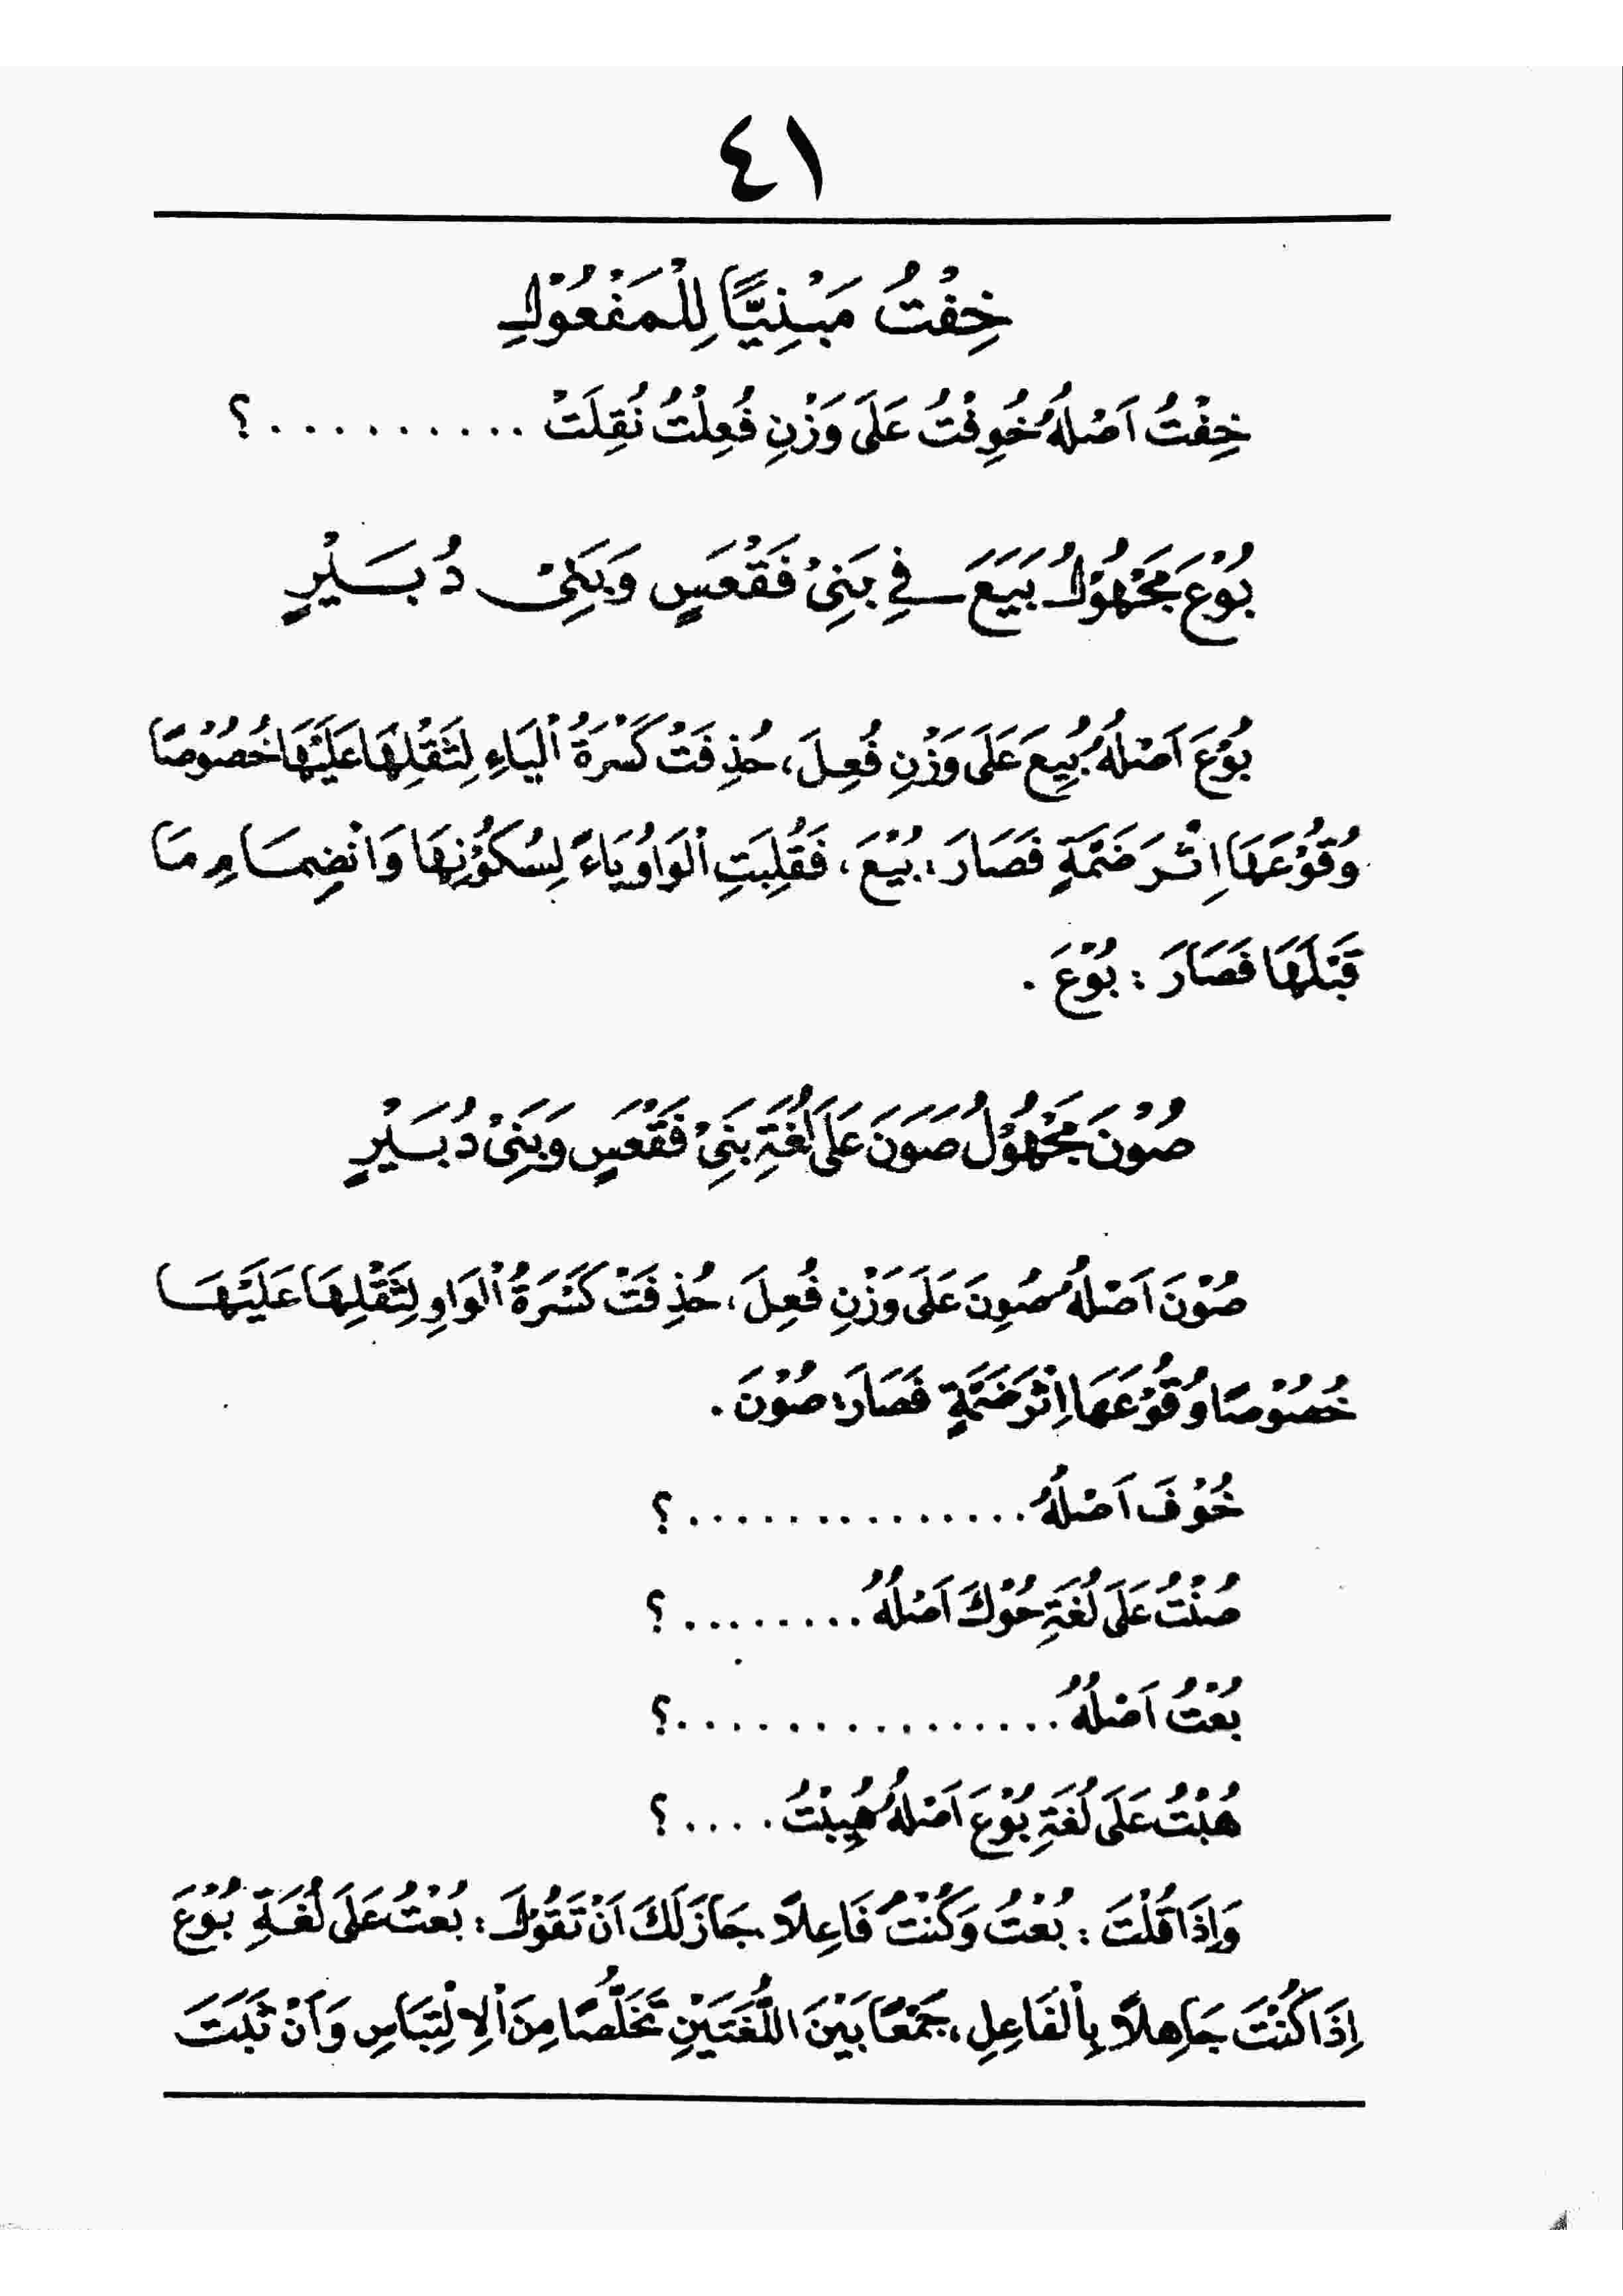 ٤١
خِفْتُ مَبْنِيًّا لِلْمَفْعُوْلِ
خِفْتُ اَصْلُهُ خُوِفْتُ عَلَى وَزْنِ فُعِلْتُ نُقِلَتْ . . . . . . . . . . ؟
بُوْعَ مَجْهُوْلُ بَيَعَ فِي بَنِيْ فَقْعَسٍ وَبَنِيْ دُبَسَيْرٍ
بُوْعَ اَصْلُهُ بُيِعَ عَلَى وَزْنِ فُعِلَ، حُذِفَتْ كَسْرَةُ الْيَاءِ لِثَقْلِهَا عَلَيْهَا خُصُوْصًا
وُقُوْعَهَا اِثْرَ ضَمَّةٍ فَصَارَ : بُيْعَ ، فَقُلِبَتِ الْوَاوُ يَاءً لِسُكُوْنِهَا وَانْضِمَامِ مَا
قَبْلَهَا فَصَارَ : بُوْعَ .
صُوْنَ مَجْهُوْلُ صَوَنَ عَلَى لُغَةِ بَنِيْ فَقْعَسٍ وَبَنِيْ دُبَسَيْرٍ
صُوْنَ اَصْلُهُ صُوِنَ عَلَى وَزْنِ فُعِلَ، حُذِفَتْ كَسْرَةُ الْوَاوِ لِثَقْلِهَا عَلَيْهَا
خُصُوْصًا وُقُوْعَهَا اِثْرَ ضَمَّةٍ فَصَارَ: صُوْنَ .
خُوْفَ اَصْلُهُ . . . . . . . . . . . . . . ؟
صُنْتُ عَلَى لُغَةِ حُوْكَ اَصْلُهُ . . . . . . . . ؟
بُعْتُ اَصْلُهُ . . . . . . . . . . . . . . . ؟
هُبْتُ عَلَى لُغَةِ بُوْعَ اَصْلُهُ هُيِبْتُ . . . . ؟
وَاِذَا قُلْتَ : بُعْتُ وَكُنْتُ فَاعِلاً، جَازَ لَكَ اَنْ تَقُوْلَ : بُعْتُ عَلَى لُغَةِ بُوْعَ
اِذَا كُنْتَ جَاهِلاً بِالْفَاعِلِ، جَمْعًا بَيْنَ اللُّغَتَيْنِ تَخَلُّصًا مِنَ الْاِلْتِبَاسِ وَاَنْ ثَبَتَ